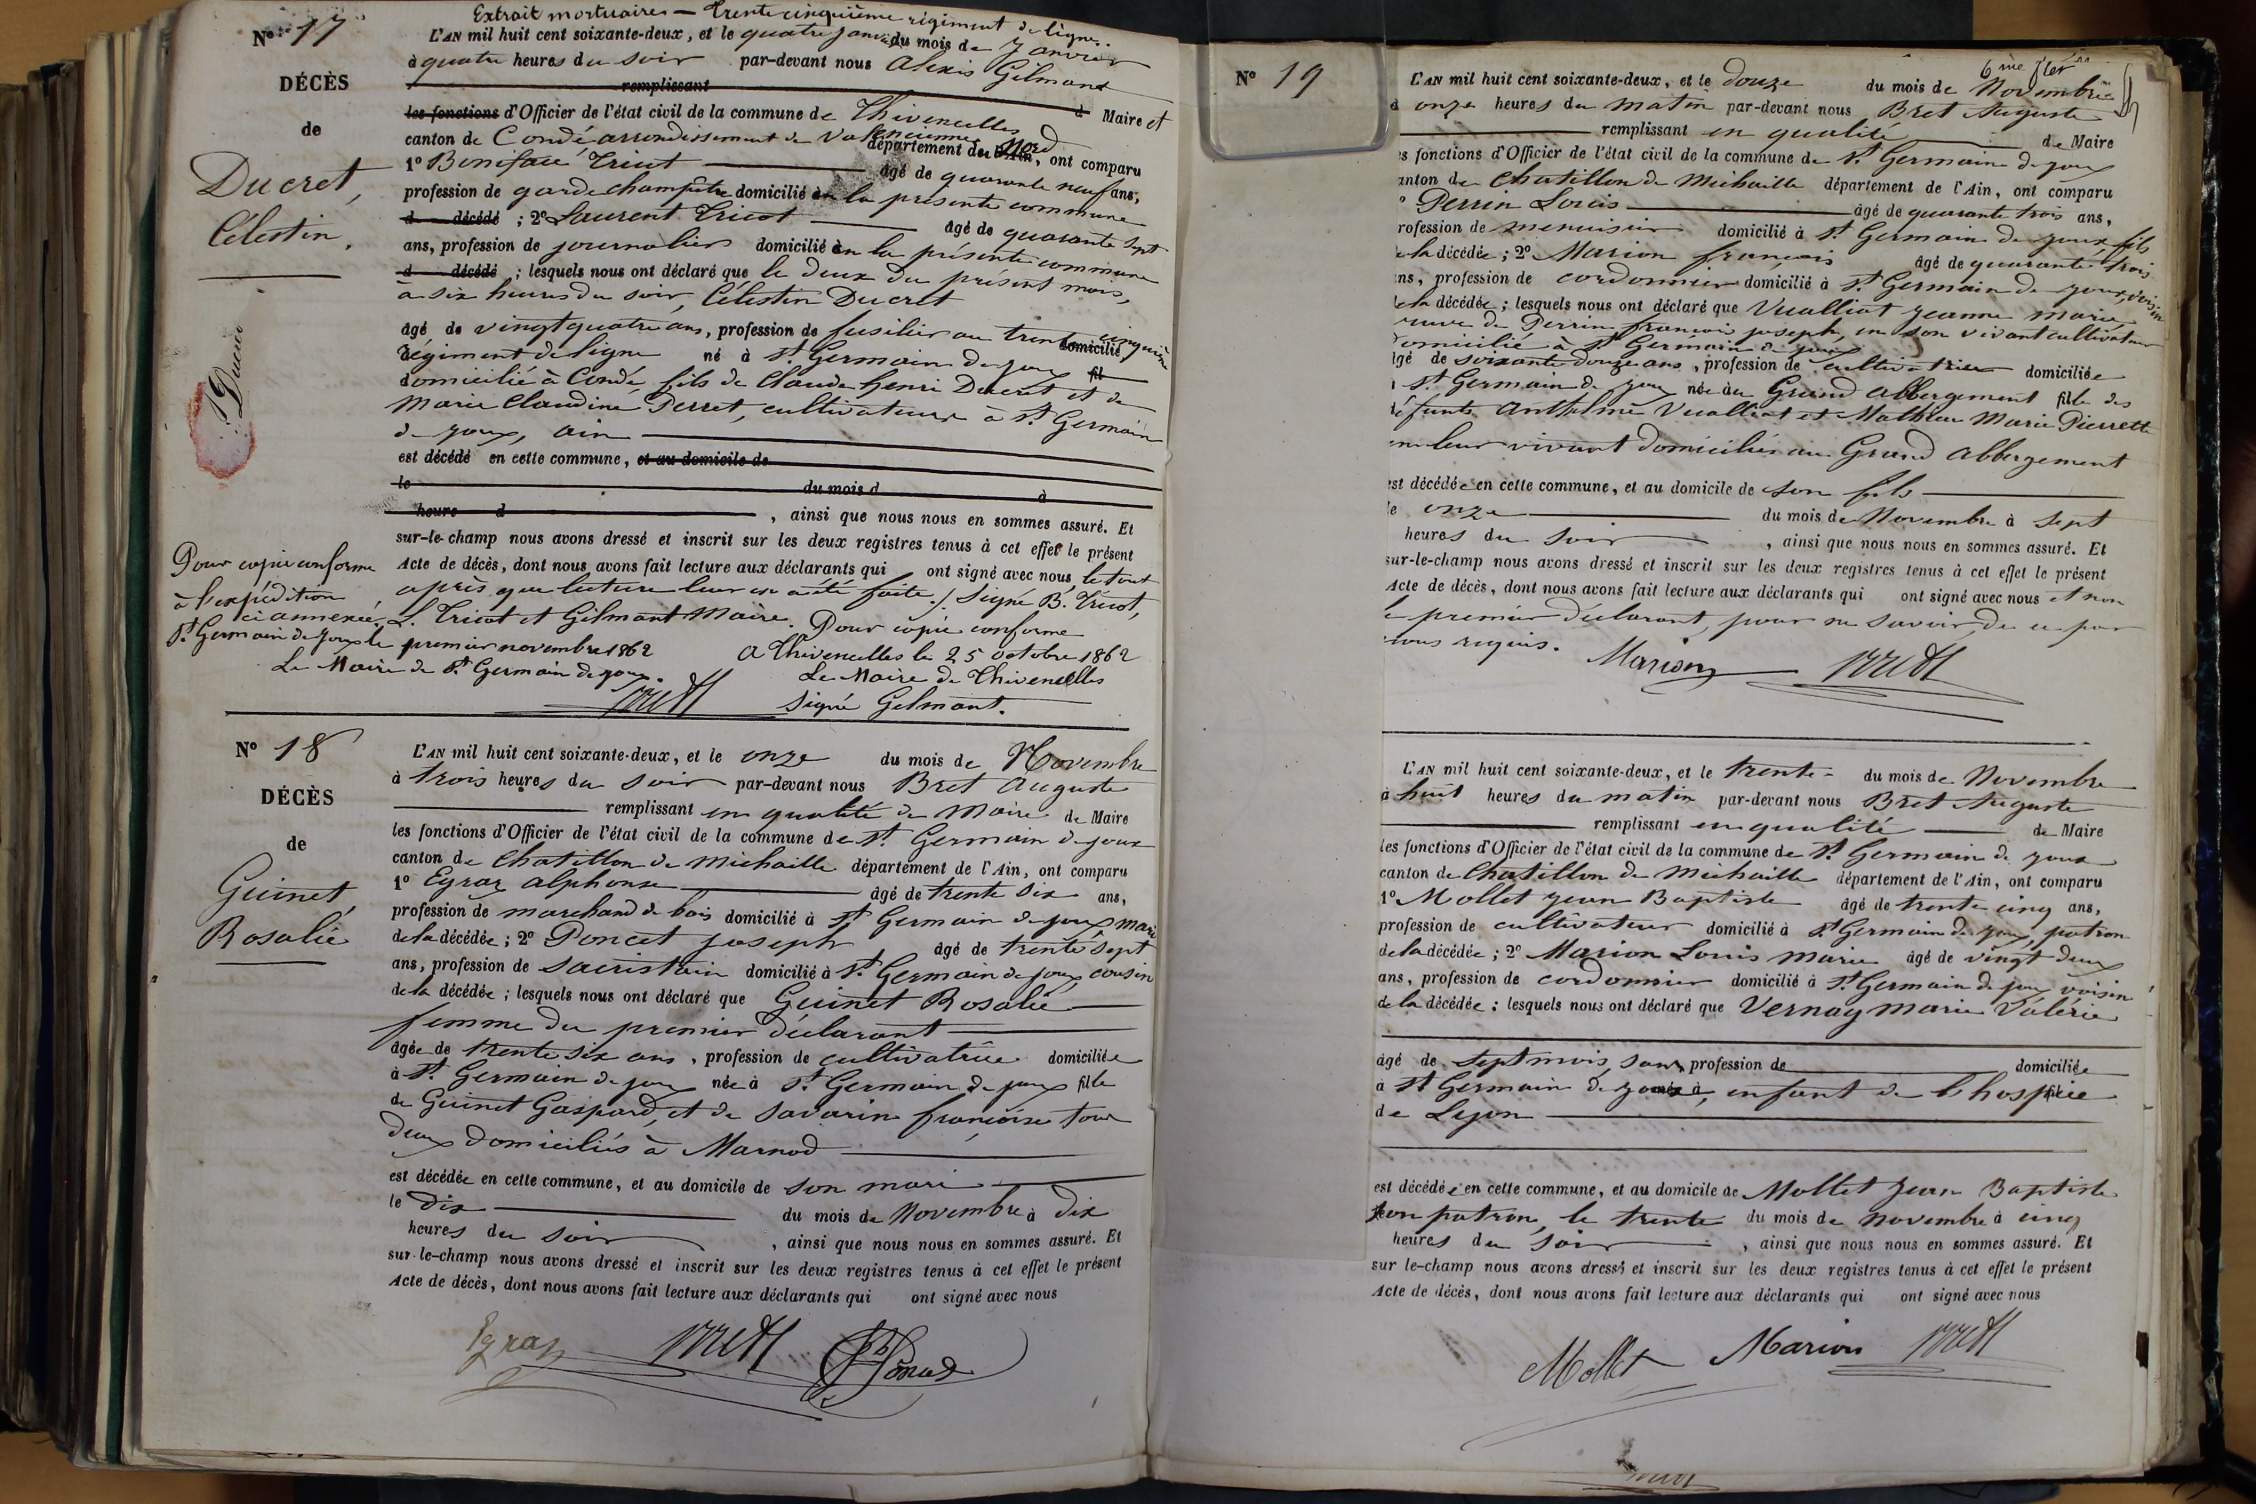 Extrait mortuaire — Trente cinquième régiment de ligne.
N° 17
DÉCÈS
de
Ducret,
Célestin.
L'AN mil huit cent soixante-deux, et le quatre janvier du mois de Janvier
à quatre heures du soir par-devant nous Alexis Gilmant
remplissant
les fonctions d'Officier de l'état civil de la commune de Thivencelles d Maire et
canton de Condé arrondissement de Valenciennes Nord
département de l'Ain, ont comparu
1° Boniface Tricot âgé de quarante neuf ans,
profession de garde champêtre domicilié en la présente commune
d décédé ; 2° Laurent Tricot âgé de quarante sept
ans, profession de journalier domicilié en la présente commune
d décédé ; lesquels nous ont déclaré que le deux du présent mois,
à six heures du soir, Célestin Ducret
âgé de vingt quatre ans, profession de fusilier au trente cinquième
domicilié
Régiment de ligne né à St. Germain de joux fil
domicilié à Condé, fils de Claude henri Ducret et de
Marie Claudine Perret, cultivateurs à St. Germain
de joux, ain
est décédé en cette commune, et au domicile de
le du mois d à
heure d , ainsi que nous nous en sommes assuré. Et
sur-le-champ nous avons dressé et inscrit sur les deux registres tenus à cet effet le présent
Acte de décès, dont nous avons fait lecture aux déclarants qui ont signé avec nous, le tout
après que lecture leur en a été faite. / Signé B. Tricot,
L. Tricot et Gilmant Maire. Pour copie conforme
A Thivencelles le 25 octobre 1862
Le Maire de Thivencelles
Signé Gilmant.
Pour copie conforme
à l'expédition
ci annexée,
St. Germain de joux le premier novembre 1862
Le Maire de St. Germain de joux.
Bret
N° 18
DÉCÈS
de
Guinet,
Rosalie
L'AN mil huit cent soixante-deux, et le onze du mois de Novembre
à trois heures du soir par-devant nous Bret Auguste
remplissant en qualité de Maire de Maire
les fonctions d'Officier de l'état civil de la commune de St. Germain de joux
canton de Chatillon de Michaille département de l'Ain, ont comparu
1° Egraz Alphonse âgé de trente six ans,
profession de marchand de bois domicilié à St Germain de joux mari
de la décédée ; 2° Poncet joseph âgé de trente sept
ans, profession de sacristain domicilié à St. Germain de joux, cousin
de la décédée ; lesquels nous ont déclaré que Guinet Rosalie
femme du premier déclarant
âgée de trente six ans, profession de cultivatrice domiciliée
à St. Germain de joux née à St. Germain de joux fille
de Guinet Gaspard, et de Savarin françoise tous
deux domiciliés à Marnod
est décédée en cette commune, et au domicile de son mari
le dix du mois de Novembre à dix
heures du soir , ainsi que nous nous en sommes assuré. Et
sur-le-champ nous avons dressé et inscrit sur les deux registres tenus à cet effet le présent
Acte de décès, dont nous avons fait lecture aux déclarants qui ont signé avec nous
Egraz Bret Poncet
N° 19
L'AN mil huit cent soixante-deux, et le douze du mois de Novembre
onze heures du matin par-devant nous Bret Auguste
remplissant en qualité de Maire
s fonctions d'Officier de l'état civil de la commune de St. Germain de joux
anton de Chatillon de Michaille département de l'Ain, ont comparu
° Perrin Louis âgé de quarante trois ans,
rofession de menuisier domicilié à St. Germain de joux fils
e la décédée ; 2° Marion françois âgé de quarante trois
ns, profession de cordonnier domicilié à St. Germain de joux, voisin
de la décédée ; lesquels nous ont déclaré que Vualliat jeanne marie
veuve de Perrin françois joseph, en son vivant cultivateur
domicilié à St Germain de joux
âgé de soixante douze ans, profession de cultivatrice domiciliée
à St. Germain de joux née au Grand Abbergement fille des
défunts Anthelme Vualliat et Mathieu Marie Pierrette
en leur vivant domiciliés au Grand Abbergement
est décédée en cette commune, et au domicile de son fils
le onze du mois de Novembre à sept
heures du soir , ainsi que nous nous en sommes assuré. Et
sur-le-champ nous avons dressé et inscrit sur les deux registres tenus à cet effet le présent
Acte de décès, dont nous avons fait lecture aux déclarants qui ont signé avec nous et non
le premier déclarant, pour ne savoir, de ce par
nous requis. Marion Bret
L'AN mil huit cent soixante-deux, et le trente du mois de Novembre
à huit heures du matin par-devant nous Bret Auguste
remplissant en qualité de Maire
les fonctions d'Officier de l'état civil de la commune de St. Germain de joux
canton de Chatillon de Michaille département de l'Ain, ont comparu
1° Mollet jean Baptiste âgé de trente cinq ans,
profession de cultivateur domicilié à St. Germain de joux, patron
de la décédée ; 2° Marion Louis marie âgé de vingt deux
ans, profession de cordonnier domicilié à St. Germain de joux voisin
de la décédée ; lesquels nous ont déclaré que Vernay marie Valérie
âgé de sept mois, sans profession de domiciliée
à St Germain de joux née à, enfant de l'hospice
de Lyon
est décédée en cette commune, et au domicile de Mollet jean Baptiste
son patron, le trente du mois de novembre à cinq
heures du soir , ainsi que nous nous en sommes assuré. Et
sur le-champ nous avons dressé et inscrit sur les deux registres tenus à cet effet le présent
Acte de décès, dont nous avons fait lecture aux déclarants qui ont signé avec nous
Mollet Marion Bret